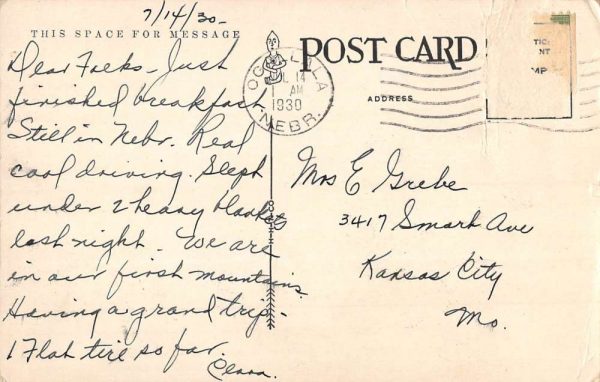 7/14/30-
THIS SPACE FOR MESSAGE
Dear Folks - Just
finished breakfast.
Still in Nebr. Real
cool driving. Slept
under 2 heavy blankets
last night. We are
in our first mountains.
Having a grand trip -
1 Flat tire so far.
Clara.
POST CARD
ADDRESS
OGALLALA
JUL 14
AM
1930
NEBR.
Mrs E Grebe
3417 Smart Ave
Kansas City
Mo.